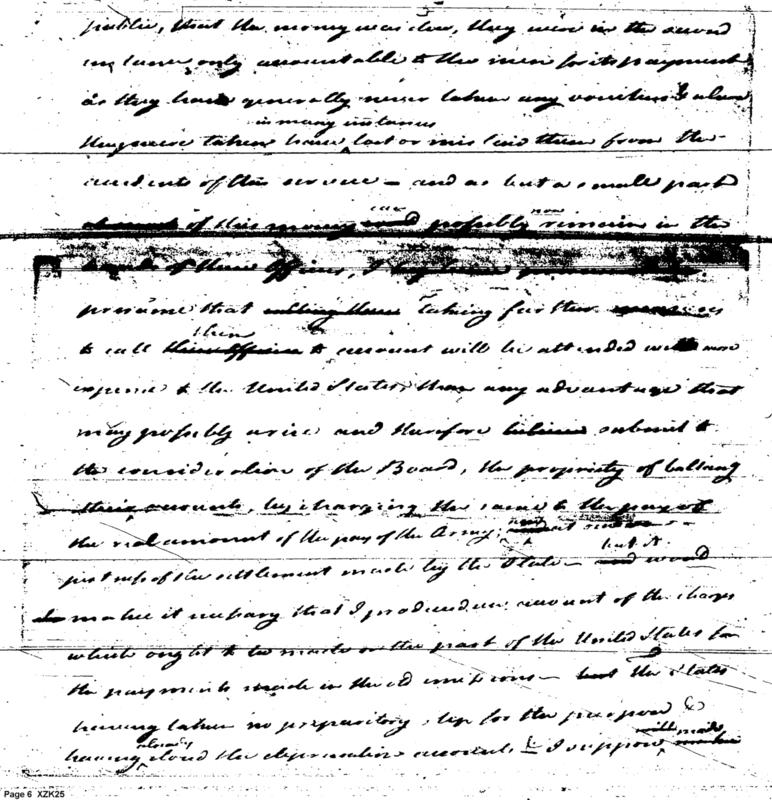 public, that the money was due, they were in the second
instance only accountable to the men for its payment
as they have generally never taken any vouchers & when
in many instances
they were taken have lost or mislaid them from the
accidents of this service — and as but a small part
of this money can possibly now remain in the
hands of these officers, I
presume that taking further measures
them
to call to account will be attended with more
expence to the United States, than any advantage that
may possibly arise and therefore submit to
the consideration of the Board, the propriety of
their accounts, by charging the same to the pay of
the real amount of the pay of the Army,
of the settlement made by the State — but it would
make it necessary that I produced an account of the charges
which ought to be made on the part of the United States for
the payments made in the old emissions — the States
having taken no preparitory step for the purpose &
already
having closed the depreciation accounts — I suppose will